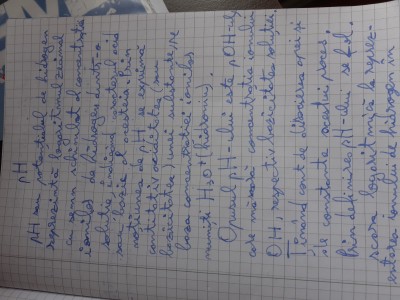 pH
pH sau potențialul de hidrogen
reprezintă logaritmul zecimal
cu semn schimbat al concentrației
ionilor de hidrogen dintr-o
soluție indicând caracterul acid
sau bazic al acesteia. Prin
noțiunea de pH se exprimă
cantitativ aciditatea (sau
bazicitatea) unei substanțe, pe
baza concentrației ionilor
numiți H3O+ (hidroniu).
Opusul pH-lui este pOH-ul,
care măsoară concentrația ionilor
OH, respectiv, bazicitatea soluției
Ținând cont de disocierea apei și
de constanta acestui proces.
Prin definirea pH-lui se fol.
scara logaritmică la reprez-
entarea ionului de hidrogen în